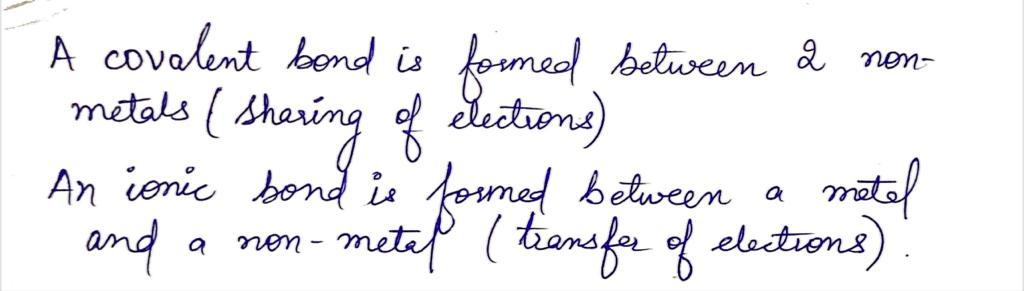 A covalent bond is formed between 2 non-
metals (sharing of electrons)
An ionic bond is formed between a metal
and a non-metal (transfer of electrons).